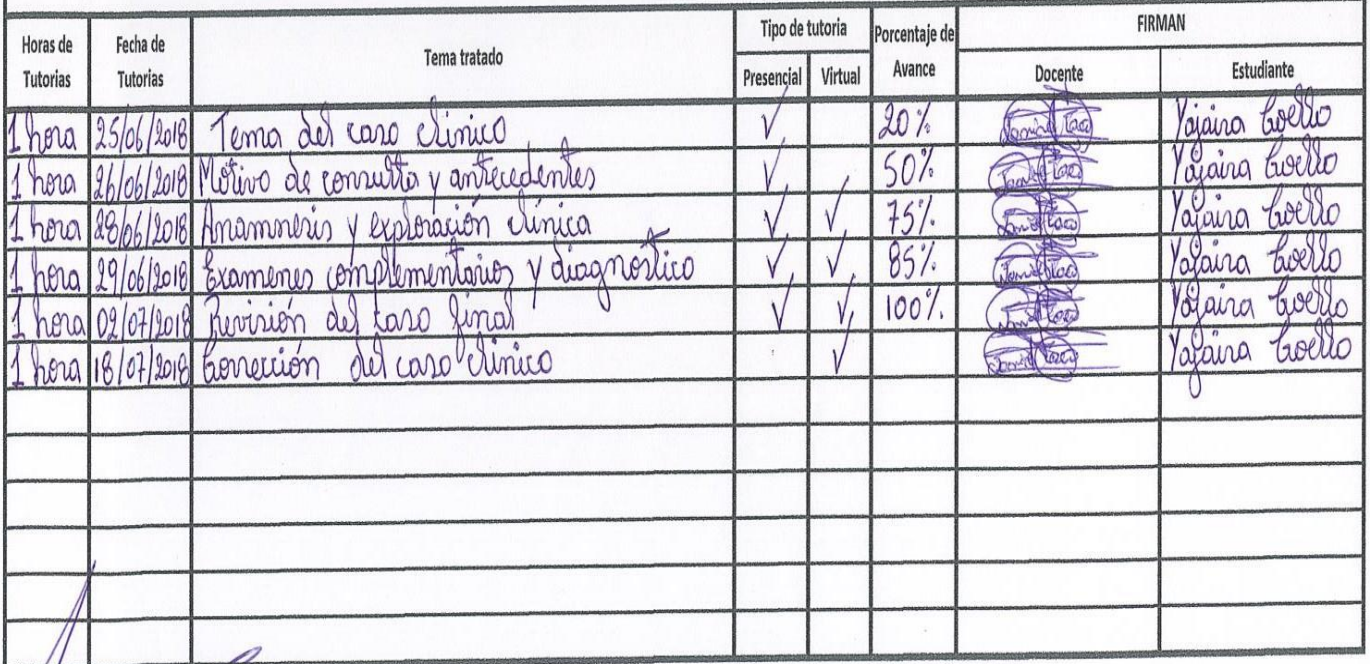 Horas de Tutorias Fecha de Tutorias Tema tratado Tipo de tutoria Porcentaje de Avance FIRMAN
Presencial Virtual Docente Estudiante
1 hora 25/06/2018 Tema del caso clinico √ 20% Yajaira Coello
1 hora 26/06/2018 Motivo de consulta y antecedentes √ 50% Yajaira Coello
1 hora 28/06/2018 Anamnesis y exploración clínica √ √ 75% Yajaira Coello
1 hora 29/06/2018 Examenes complementarios y diagnostico √ √ 85% Yajaira Coello
1 hora 02/07/2018 Revisión del caso final √ √ 100% Yajaira Coello
1 hora 18/07/2018 Corrección del caso clinico √ Yajaira Coello